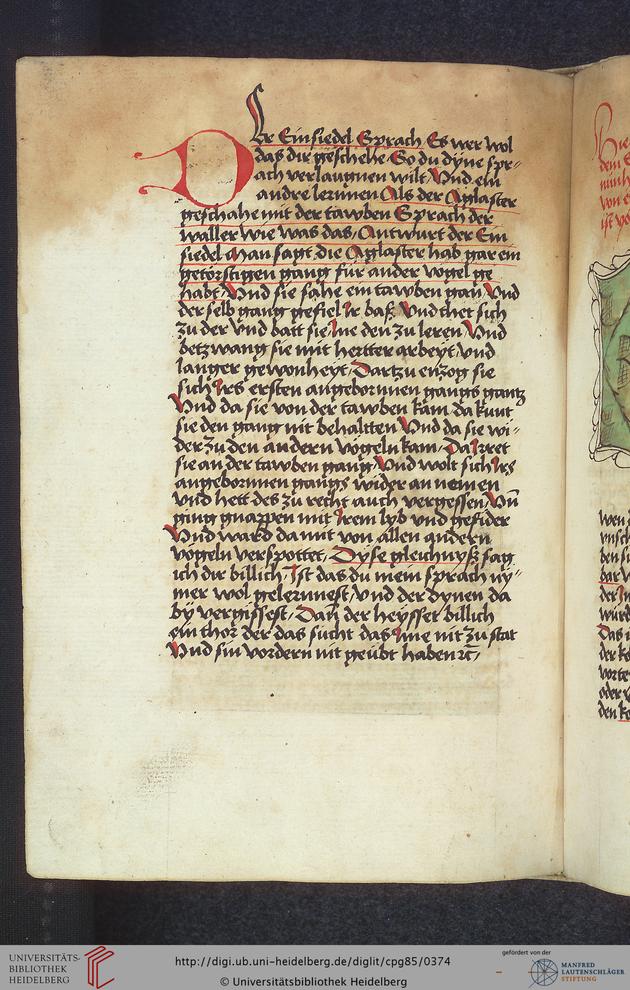 Der Einsidel Sprach Es wer wol
das dir geschehe So du dyne spr-
ach verlaugnen wilt Vnd ein
andre lernnen Als der Aglaster
geschahe mit der tawben Sprach der
waller wie was das, Antwurt der Ein
sidel Man sagt die Aglaster hab gar ein
getorstigen gang für ander vogel ge
habt, Vnd sie sahe ein tawben gan, Vnd
der selb gang gefiel Ir baß, Vnd thet sich
zu der vnd batt sie Ine den zu leren, Vnd
betzwang sie mit hertter arbeyt, vnd
langer gewonheyt, Dartzu enzog sie
sich Irs ersten angebornnen gangs gantz
Vnd da sie von der tawben kam da kunt
sie den gang nit behaltten Vnd da sie wi-
der zu den andern vögeln kam, Da Irret
sie an der tawben gang, Vnd wolt sich Irs
angebornnen gangs wider an nemen
vnd hett des zu recht auch vergessen, Vn̄
ging gnappen mit Irem lyb vnd gefider
Vnd ward da mit von allen andern
vögeln verspottet, Dyse gleichnyß sag
ich dir billich, Ist das du mein sprach ny-
mer wol gelernnest, vnd der dynen da
by vergissest, Dan̄ der heysset billich
ein thor der das sücht das Ime nit zu stat
Vnd sin vordern nit geübt haben ꝛc,
UNIVERSITÄTS-
BIBLIOTHEK
HEIDELBERG
http://digi.ub.uni-heidelberg.de/diglit/cpg85/0374
© Universitätsbibliothek Heidelberg
gefördert von der
MANFRED
LAUTENSCHLÄGER
STIFTUNG